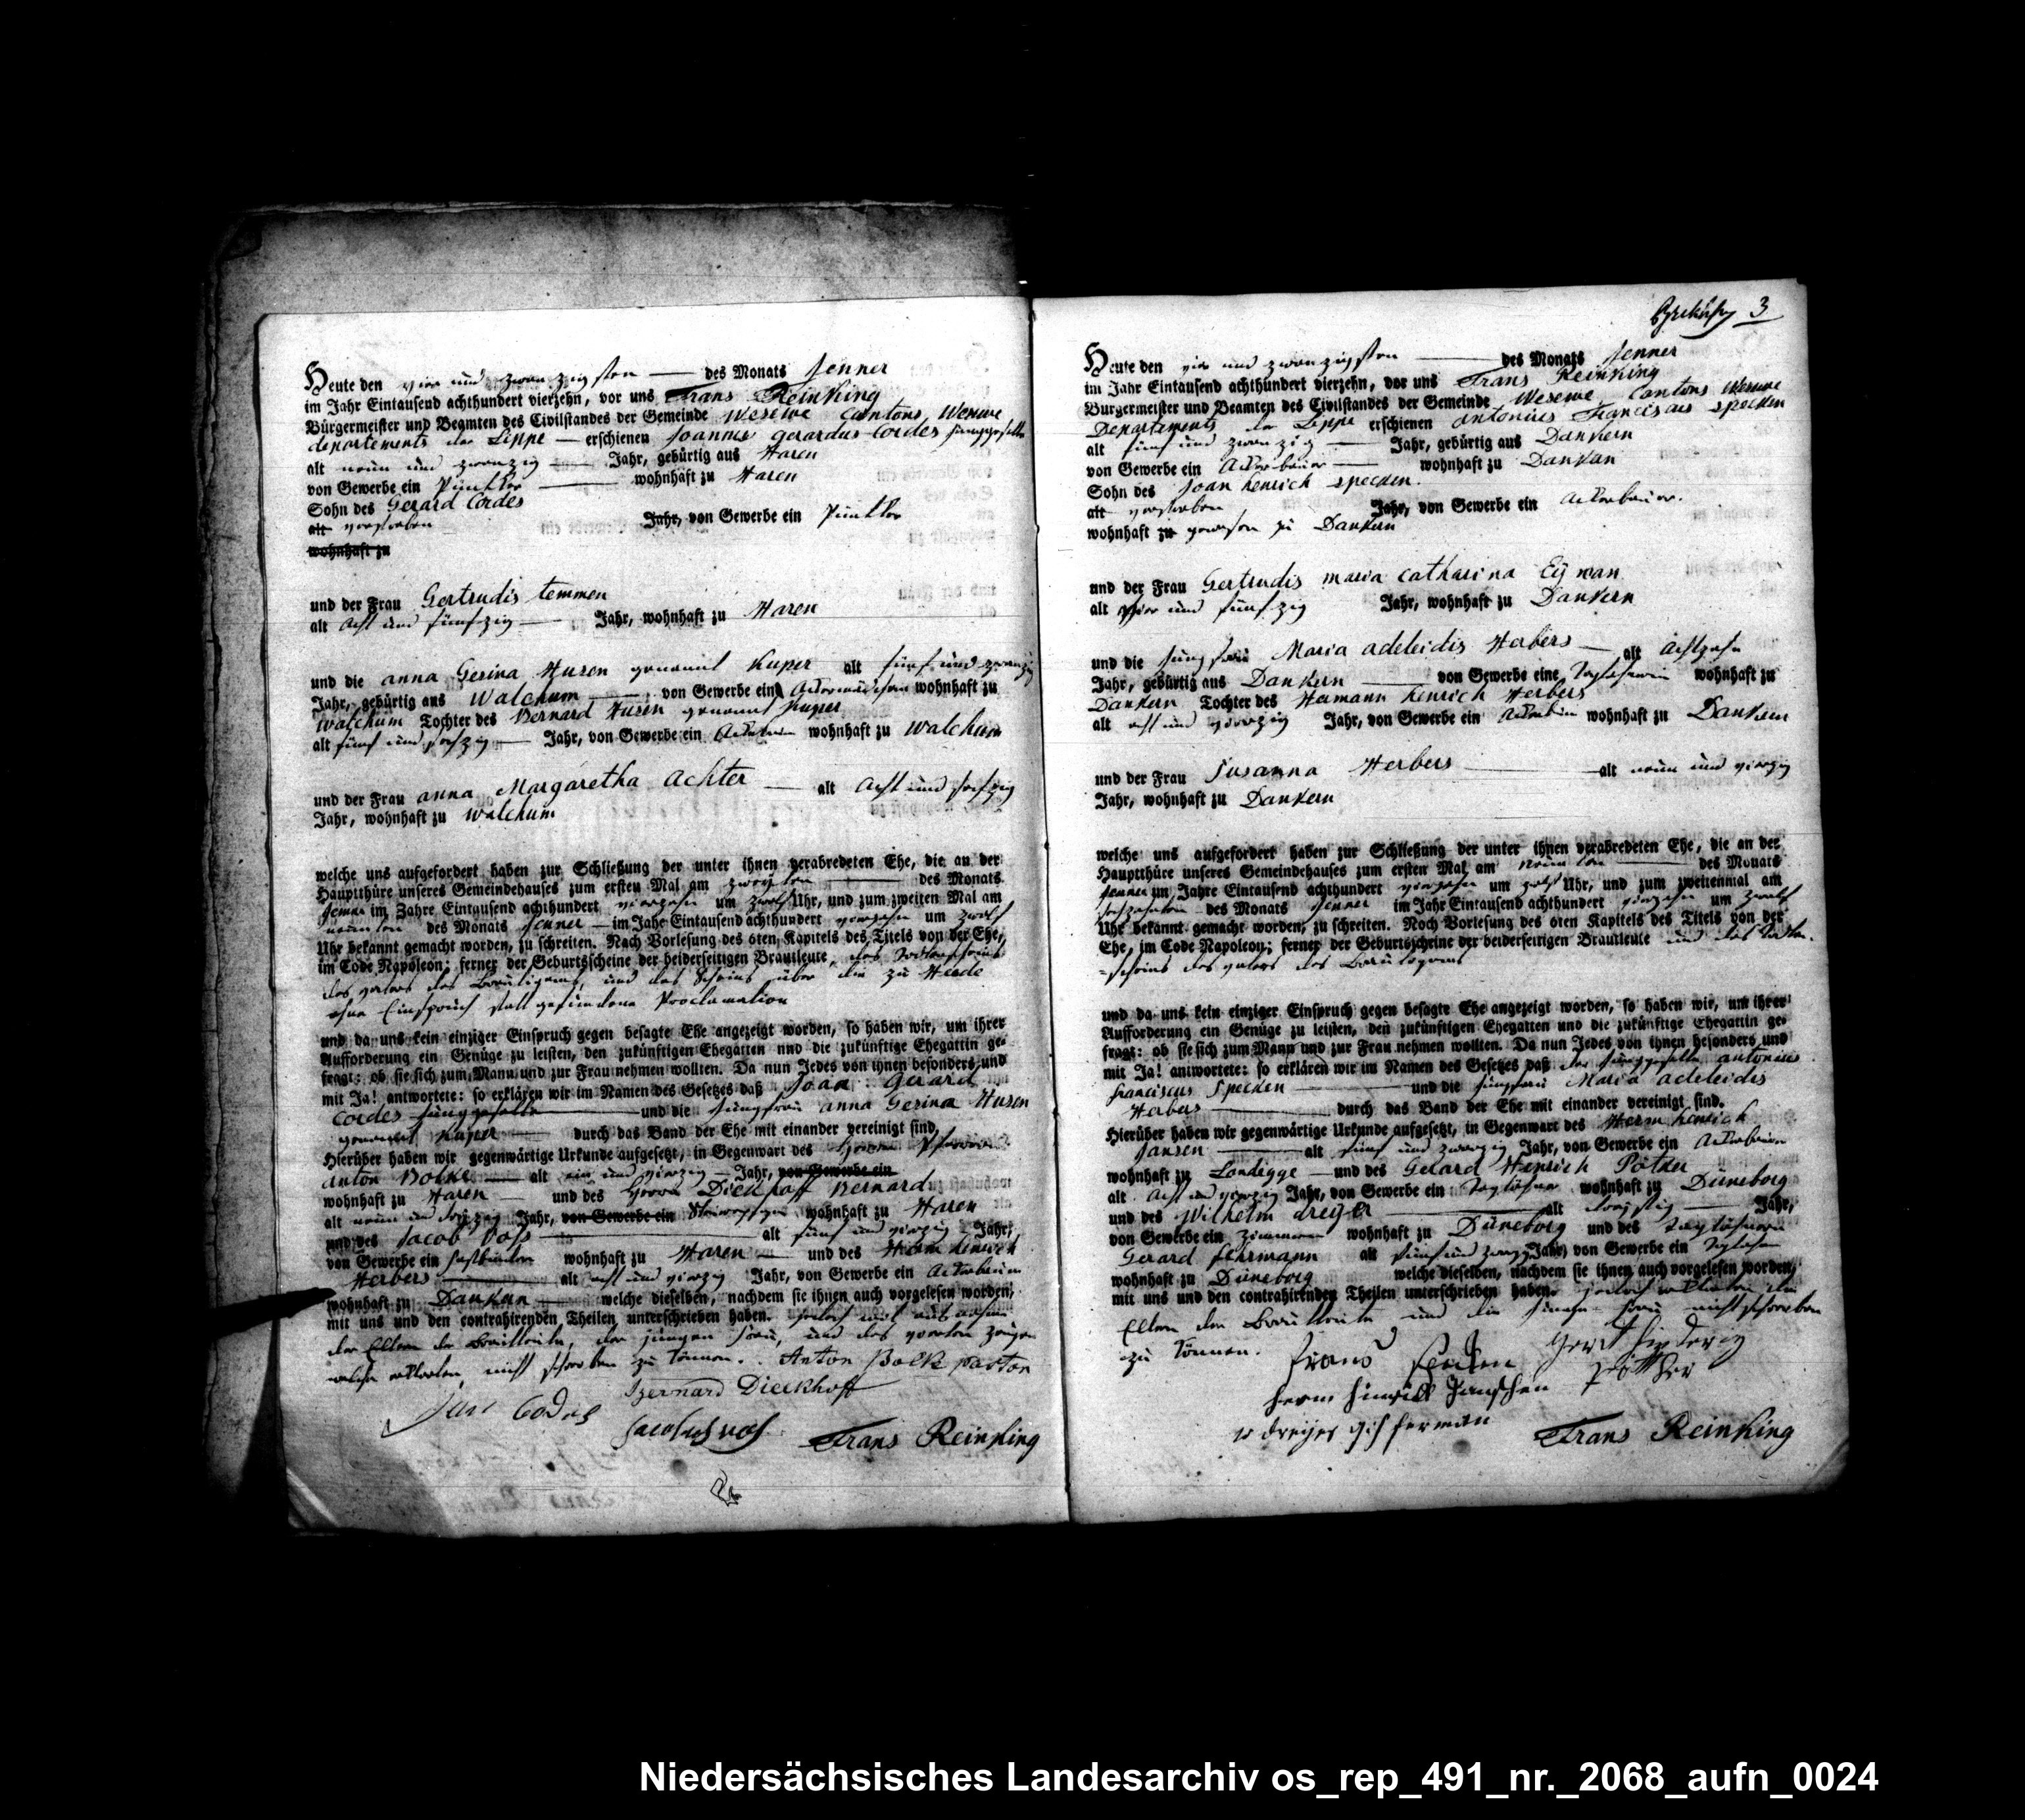 Heute den vier und zwanzigsten des Monats Jenner
im Jahr Eintausend achthundert vierzehn, vor uns Frans Reinking
Bürgermeister und Beamten des Civilstandes der Gemeinde Wesewe Cantons Wesuwe
departements der Lippe erschienen Joannes Gerardus Cordes Junggeselle
alt neun und zwanzig Jahr, gebürtig aus Haren
von Gewerbe ein Püntker wohnhaft zu Haren
Sohn des Gerard Cordes
alt verstorben Jahr, von Gewerbe ein Püntker
wohnhaft zu
und der Frau Gertrudis temmen
alt Acht und fünfzig Jahr, wohnhaft zu Haren
und die anna Gesina Husen genannt Kuper alt fünf und zwanzig
Jahr, gebürtig aus Walchum von Gewerbe ein wohnhaft zu
Walchum Tochter des Bernard Husen genannt Kuper
alt fünf und sechzig Jahr, von Gewerbe ein wohnhaft zu Walchum
und der Frau anna Margaretha Achter alt Acht und sechzig
Jahr, wohnhaft zu Walchum
welche uns aufgefordert haben zur Schließung der unter ihnen verabredeten Ehe, die an der
Hauptthüre unseres Gemeindehauses zum ersten Mal am zweyten des Monats
Jenner im Jahre Eintausend achthundert vierzehn um zwölf Uhr, und zum zweiten Mal am
neunten des Monats Jenner im Jahr Eintausend achthundert vierzehn um zwölf
Uhr bekannt gemacht worden, zu schreiten. Nach Vorlesung des 6ten Kapitels des Titels von der Ehe,
im Code Napoleon; ferner der Geburtsscheine der beiderseitigen Brautleute, des Todtenscheins
des vaters des Bräutigams, und des Scheins über die zu Heede
ohne Einspruch statt gefundene Proclamation
und da uns kein einziger Einspruch gegen besagte Ehe angezeigt worden, so haben wir, um ihrer
Aufforderung ein Genüge zu leisten, den zukünftigen Ehegatten nnd die zukünftige Ehegattin ge-
fragt: ob sie sich zum Mann und zur Frau nehmen wollten. Da nun Jedes von ihnen besonders und
mit Ja! antwortete: so erklären wir im Namen des Gesetzes daß Joan Gerard
Cordes Junggeselle und die Jungfrau anna Gesina Husen
genannt Kuper durch das Band der Ehe mit einander vereinigt sind.
Hierüber haben wir gegenwärtige Urkunde aufgesetzt, in Gegenwart des Herrn Pfarrer
anton Bolke alt ein und vierzig Jahr, von Gewerbe ein
wohnhaft zu Haren und des Herrn Dieckhoff Bernard
alt neun und dreyzig Jahr, von Gewerbe ein wohnhaft zu Haren
und des Jacob Voss alt fünf und vierzig Jahr,
von Gewerbe ein wohnhaft zu Haren und des Herm henrich
Herbers alt acht und vierzig Jahr, von Gewerbe ein Ackerbauer
wohnhaft zu Dankern welche dieselben, nachdem sie ihnen auch vorgelesen worden,
mit uns und den contrahirenden Theilen unterschrieben haben. jedoch mit ausnahme
der Eltern der Brautleute, der jungen frau, und des vierten Zeugen
welche erklarten, nicht schreiben zu können. Anton Bolke pastor
Bernard Dieckhoff
Jan Cordes Jacob Vos Frans Reinking
3
Heute den vier und zwanzigsten des Monats Jenner
im Jahr Eintausend achthundert vierzehn, vor uns Frans Reinking
Bürgermeister und Beamten des Civilstandes der Gemeinde Wesewe Cantons Wesuwe
Departements der Lippe erschienen antonius Franciscus specken
alt fünf und zwanzig Jahr, gebürtig aus Dankern
von Gewerbe ein Ackerbauer wohnhaft zu Dankern
Sohn des Joan henrich specken.
alt verstorben Jahr, von Gewerbe ein Ackerbauer.
wohnhaft zu gewesen zu Dankern
und der Frau Gertrudis maria Catharina Eyman
alt vier und fünfzig Jahr, wohnhaft zu Dankern
und die Jungfrau Maria adeleidis Herbers alt Achtzehn
Jahr, gebürtig aus Dankern von Gewerbe eine wohnhaft zu
Dankern Tochter des Hermann henrich Herbers
alt acht und vierzig Jahr, von Gewerbe ein wohnhaft zu Dankern
und der Frau Susanna Herbers alt neun und vierzig
Jahr, wohnhaft zu Dankern
welche uns aufgefordert haben zur Schließung der unter ihnen verabredeten Ehe, die an der
Hauptthüre unseres Gemeindehauses zum ersten Mal am neunten des Monats
Jenner im Jahre Eintausend achthundert vierzehn um zwölf Uhr, und zum zweitenmal am
sechzehnten des Monats Jenner im Jahr Eintausend achthundert vierzehn um zwölf
Uhr bekannt gemacht worden, zu schreiten. Noch Vorlesung des 6ten Kapitels des Titels von der
Ehe, im Code Napoleon; ferner der Geburtsscheine der beiderseitigen Brautleute und des Todten-
-scheins des vaters des Bräutigams
und da uns kein einziger Einspruch gegen besagte Ehe angezeigt worden, so haben wir, um ihrer
Aufforderung ein Genüge zu leisten, den zukünftigen Ehegatten und die zukünftige Ehegattin ge-
fragt: ob sie sich zum Mann und zur Frau nehmen wollten. Da nun Jedes von ihnen besonders und
mit Ja! antwortete: so erklären wir im Namen des Gesetzes daß der Junggeselle antonius
franciscus Specken und die Jungfrau Maria adeleidis
Herbers durch das Band der Ehe mit einander vereinigt sind.
Hierüber haben wir gegenwärtige Urkunde aufgesetzt, in Gegenwart des Herm henrich
Jansen alt fünf und zwanzig Jahr, von Gewerbe ein Ackerbauer
wohnhaft zu Landegge und des Gerard Henrich Pötker
alt Acht und vierzig Jahr, von Gewerbe ein Taglöhner wohnhaft zu Düneborg
und des Wilhelm dreyer alt dreyssig Jahr,
von Gewerbe ein Zimmermann wohnhaft zu Düneborg und des Taglöhners
Gerard fehrmann alt fünf und zwanzig Jahr, von Gewerbe ein Taglöhner
wohnhaft zu Düneborg welche dieselben, nachdem sie ihnen auch vorgelesen worden,
mit uns und den contrahirenden Theilen unterschrieben haben. jedoch erklarten die
Eltern der Brautleute und die Jungfrau nicht schreiben
zu können. frans specken
pötker
herm hinrich Janschen
w dreijer fermann Frans Reinking
Niedersächsisches Landesarchiv os_rep_491_nr._2068_aufn_0024